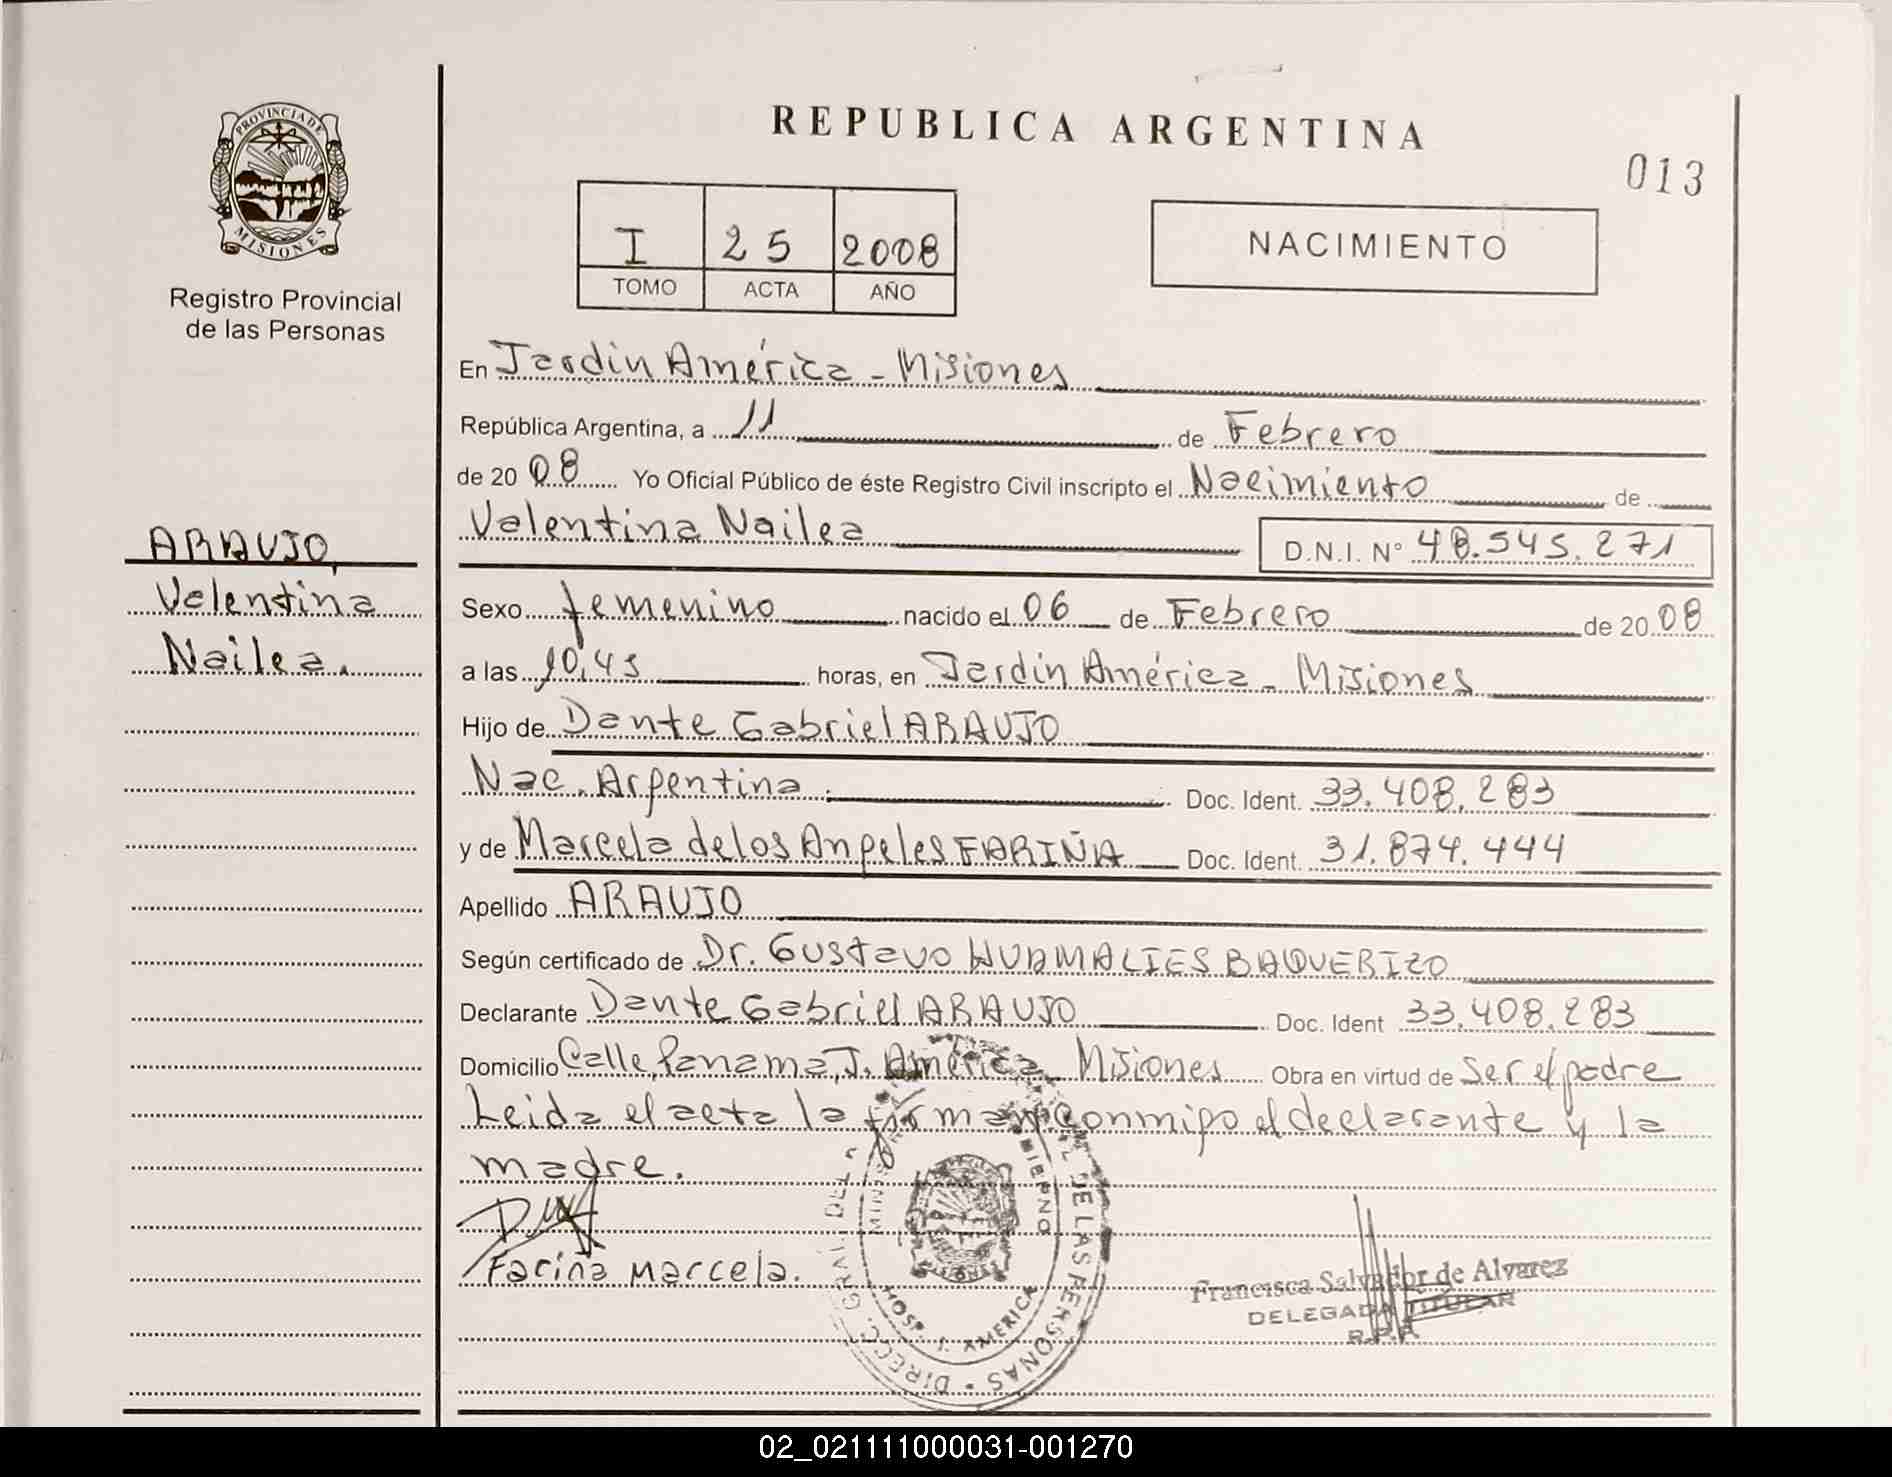 REPUBLICA ARGENTINA
013
PROVINCIA DE
MISIONES
Registro Provincial
de las Personas
I 25 2008
TOMO ACTA AÑO
NACIMIENTO
En Jardín América - Misiones
República Argentina, a 11 de Febrero
de 20 08 Yo Oficial Público de éste Registro Civil inscripto el Nacimiento de
Valentina Nailea D.N.I. Nº 48.545.271
ARAUJO,
Valentina
Nailea.
Sexo femenino nacido el 06 de Febrero de 20 08
a las 10,45 horas, en Jardín América - Misiones
Hijo de Dante Gabriel ARAUJO
Nac. Argentina. Doc. Ident. 33.408.283
y de Marcela de los Angeles FARIÑA Doc. Ident. 31.874.444
Apellido ARAUJO
Según certificado de Dr. Gustavo HUAMALIES BAQUERIZO
Declarante Dante Gabriel ARAUJO Doc. Ident 33.408.283
Domicilio Calle Panama, J. América Misiones Obra en virtud de Ser el padre
Leida el acta la firman conmigo el declarante y la
madre.
Fariña Marcela.
DIRECC. GRAL DE LAS PERSONAS
HOSP. J. AMERICA
Francisca Salvador de Alvarez
DELEGADA TITULAR
R.P.P.
02_021111000031-001270